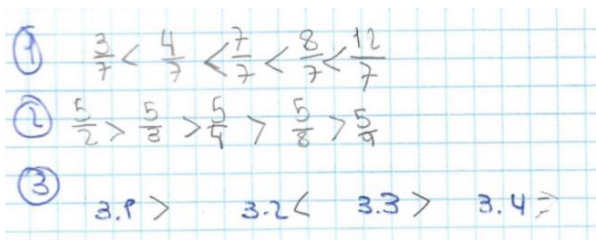 ① 3/7 < 4/7 < 7/7 < 8/7 < 12/7
② 5/2 > 5/3 > 5/4 > 5/8 > 5/9
③
3.1 > 3.2 < 3.3 > 3.4 =